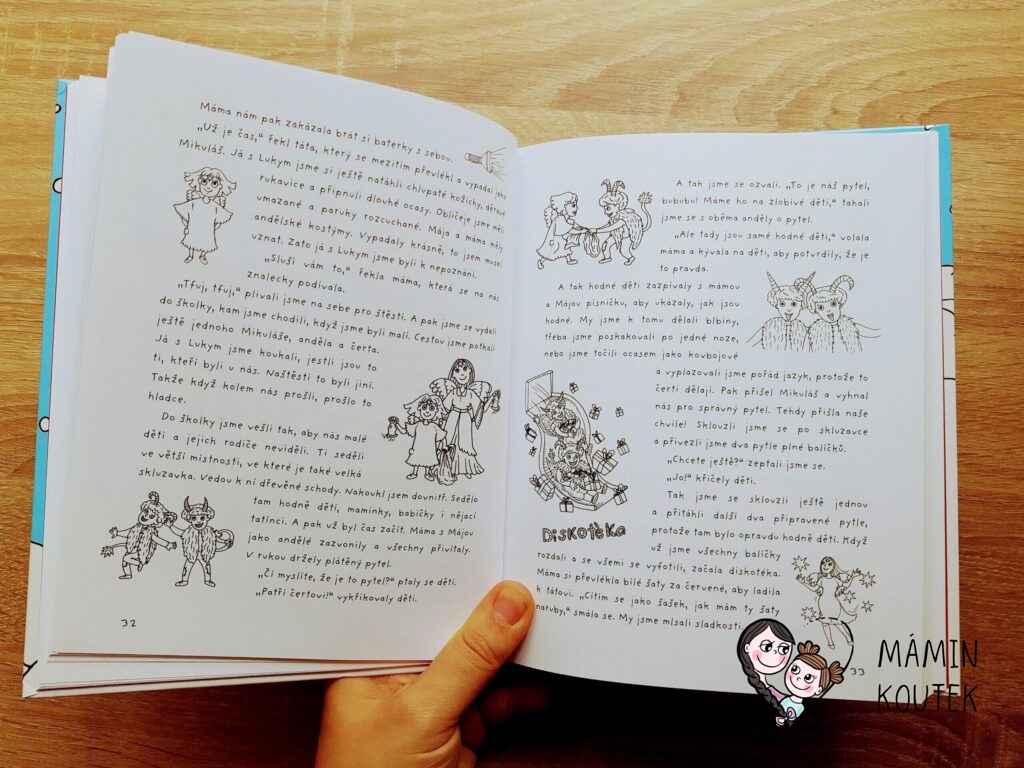 Máma nám pak zakázala brát si baterky s sebou.
„Už je čas,“ řekl táta, který se mezitím převlékl a vypadal jako
Mikuláš. Já s Lukym jsme si ještě natáhli chlupaté kožichy, čertové
rukavice a připnuli dlouhé ocasy. Obličeje jsme měli
umazané a paruky rozcuchané. Mája a máma měly
andělské kostýmy. Vypadaly krásně, to jsem musel
uznat. Zato já s Lukym jsme byli k nepoznání.
„Sluší vám to,“ řekla máma, která se na nás
znalecky podívala.
„Tfuj, tfuj,“ plivali jsme na sebe pro štěstí. A pak jsme se vydali
do školky, kam jsme chodili, když jsme byli malí. Cestou jsme potkali
ještě jednoho Mikuláše, anděla a čerta.
Já s Lukym jsme koukali, jestli jsou to
ti, kteří byli u nás. Naštěstí to byli jiní.
Takže když kolem nás prošli, prošlo to
hladce.
Do školky jsme vešli tak, aby nás malé
děti a jejich rodiče neviděli. Ti seděli
ve větší místnosti, ve které je také velká
skluzavka. Vedou k ní dřevěné schody. Nakoukl jsem dovnitř. Sedělo
tam hodně dětí, maminky, babičky i nějací
tatínci. A pak už byl čas začít. Máma s Májou
jako andělé zazvonily a všechny přivítaly.
V rukou držely plátěný pytel.
„Či myslíte, že je to pytel?“ ptaly se dětí.
„Patří čertovi!“ vykřikovaly děti.
32
A tak jsme se ozvali. „To je náš pytel,
bububu! Máme ho na zlobivé děti,“ tahali
jsme se s oběma anděly o pytel.
„Ale tady jsou samé hodné děti,“ volala
máma a kývala na děti, aby potvrdily, že je
to pravda.
A tak hodné děti zazpívaly s mámou
a Májou písničku, aby ukázaly, jak jsou
hodné. My jsme k tomu dělali blbiny,
třeba jsme poskakovali po jedné noze,
nebo jsme točili ocasem jako kovbojové
a vyplazovali jsme pořád jazyk, protože to
čerti dělají. Pak přišel Mikuláš a vyhnal
nás pro správný pytel. Tehdy přišla naše
chvíle! Sklouzli jsme se po skluzavce
a přivezli jsme dva pytle plné balíčků.
„Chcete ještě?“ zeptali jsme se.
„Jo!“ křičely děti.
Tak jsme se sklouzli ještě jednou
a přitáhli další dva připravené pytle,
protože tam bylo opravdu hodně dětí. Když
už jsme všechny balíčky
Diskotéka
rozdali a se všemi se vyfotili, začala diskotéka.
Máma si převlékla bílé šaty za červené, aby ladila
k tátovi. „Cítím se jako šašek, jak mám ty šaty
naruby,“ smála se. My jsme mlsali sladkosti.
33
MÁMIN
KOUTEK